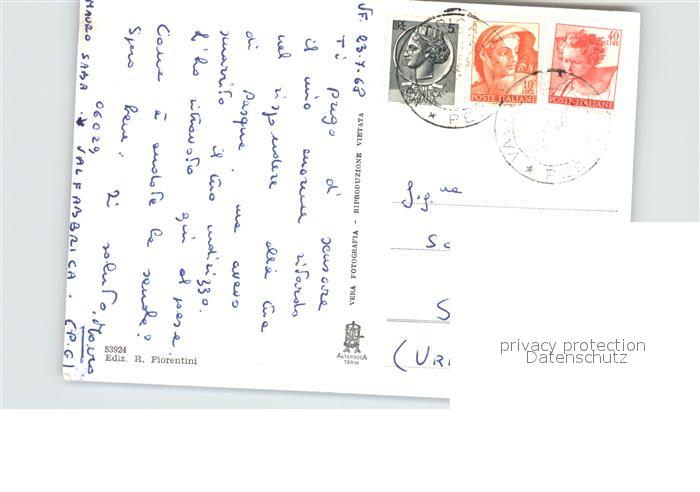 VF. 23-7-68
Ti prego di scusare
il mio enorme ritardo
nel rispondere alla tua
di Pasqua. ma avevo
smarrito il tuo indirizzo.
L'ho ritrovato qui al paese.
Come è andata la scuola?
Spero bene. Ti saluto, Mauro
MAURO SABA * VALFABBRICA. (P.G)
06029
53924
Ediz. R. Fiorentini
VERA FOTOGRAFIA - RIPRODUZIONE VIETATA
ALTEROCCA
TERNI
LIRE 5
10 LIRE
POSTE ITALIANE
40 LIRE
POSTE ITALIANE
privacy protection
Datenschutz